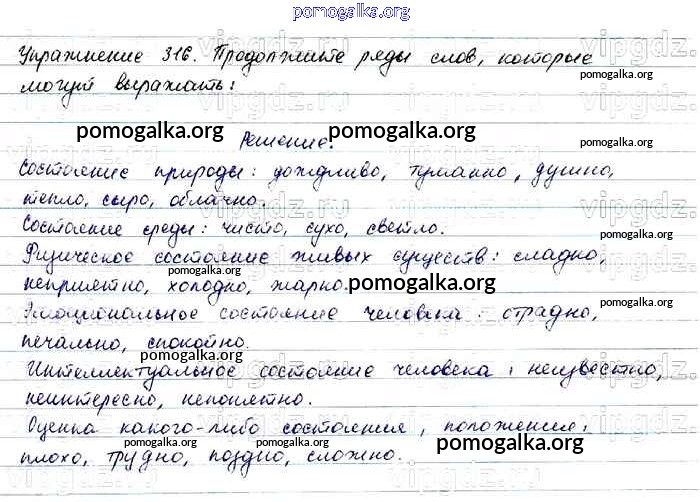 pomogalka.org
Упражнение 316. Продолжите ряды слов, которые
могут выражать:
Решение.
Состояние природы: дождливо, туманно, душно,
тепло, сыро, облачно.
Состояние среды: чисто, сухо, светло.
Физическое состояние живых существ: сладно,
неприятно, холодно, жарко.
Эмоциональное состояние человека: отрадно,
печально, спокойно.
Интеллектуальное состояние человека: неизвестно,
неинтересно, непонятно.
Оценка какого-либо состояния, положения:
плохо, трудно, поздно, сложно.
pomogalka.org
pomogalka.org
pomogalka.org
pomogalka.org
pomogalka.org
pomogalka.org
pomogalka.org
pomogalka.org
pomogalka.org
pomogalka.org
pomogalka.org
vipgdz.ru